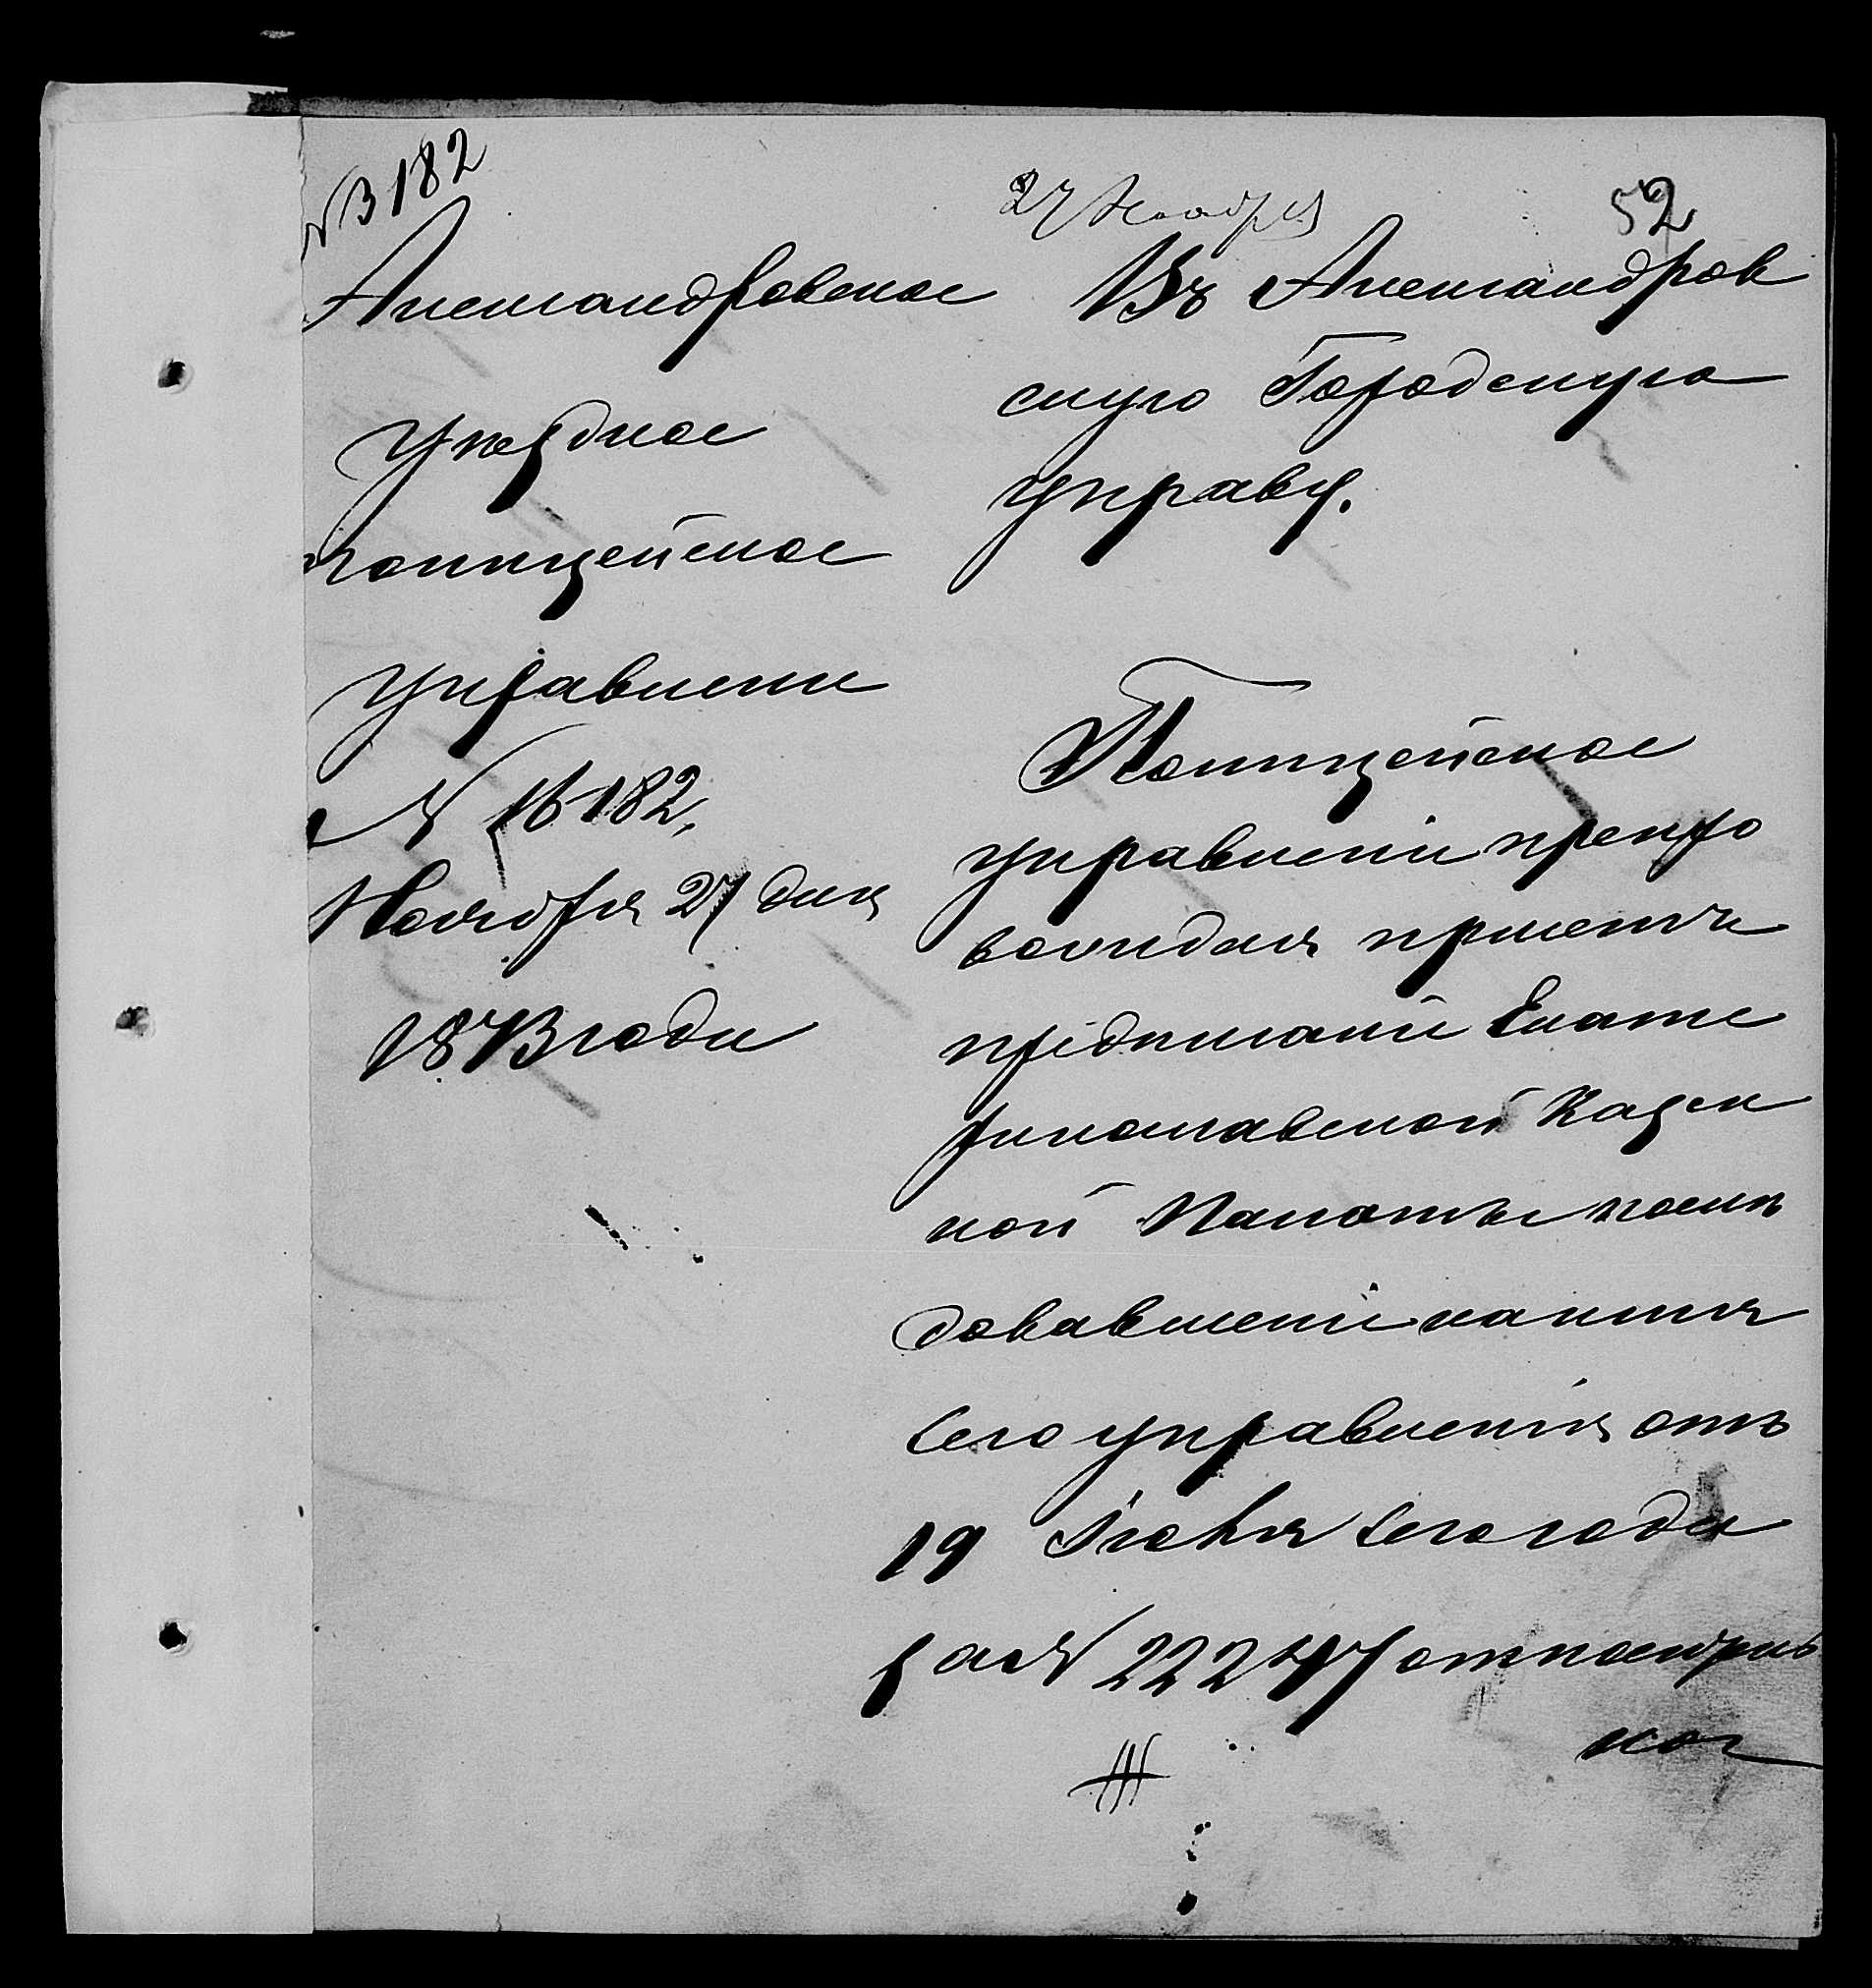 № 3182
27 Ноября
52
Александровское
уѣздное
полицейское
управлени
№ 16182.
Ноября 27 дня
1873 года
Въ Александров
скую Городскую
управу.
Полицейское
управлени препро
вождая при семъ
предписаніи Екате
ринославской Казен
ной Палаты послѣ
довавшени на имя
сего управленія отъ
19 Іюня сего года
за № 22247
ног